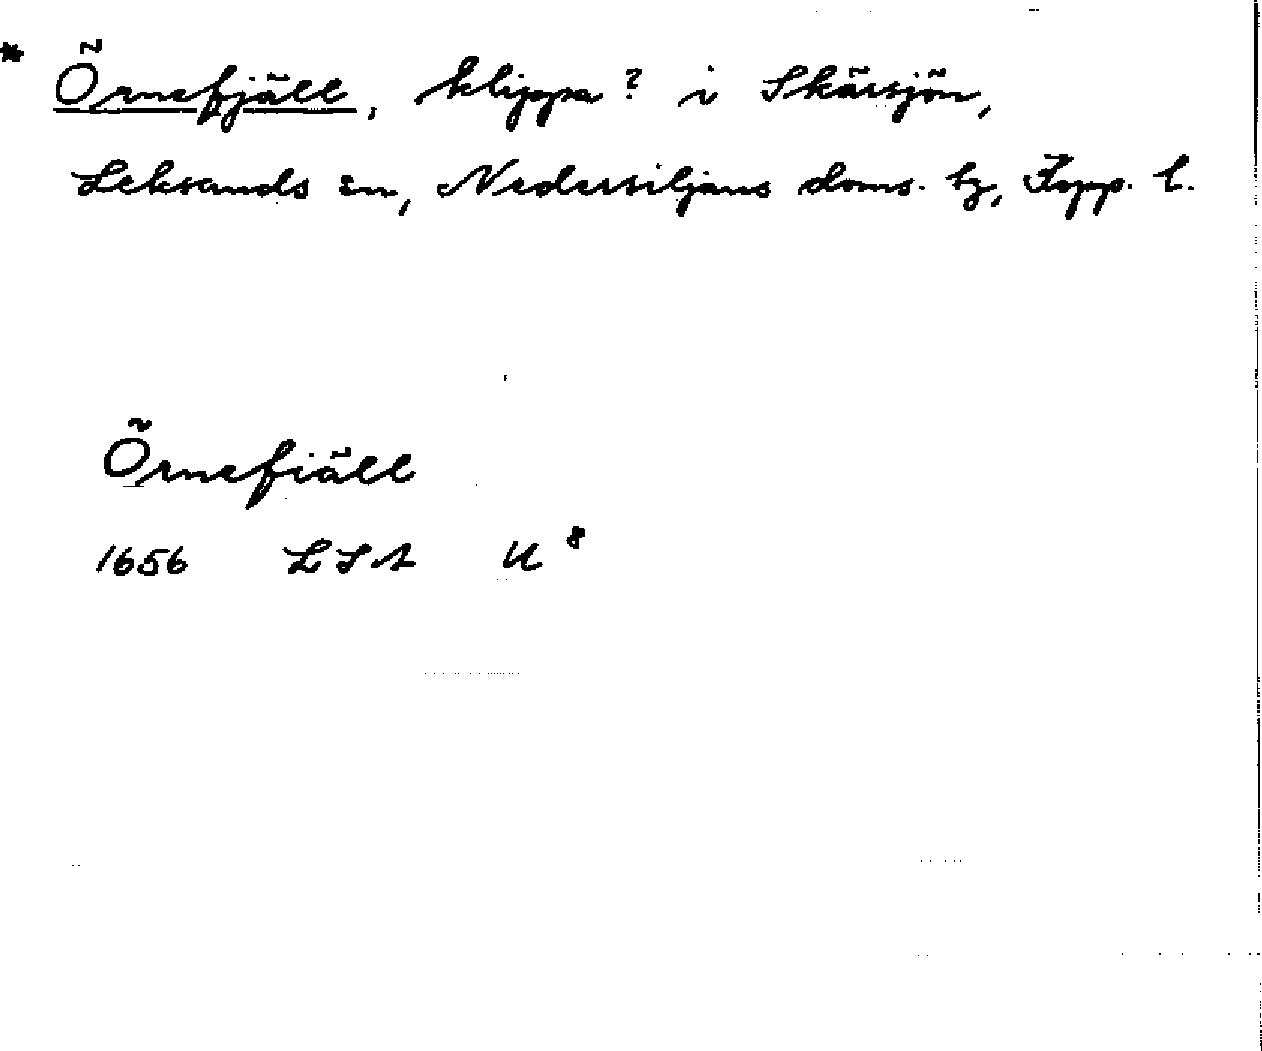 * Örnefjäll, klippa? i Skärsjön,
Leksands sn, Nedersiljans doms. tg, Kopp. l.
Örnefiäll
1656 LSA U 8